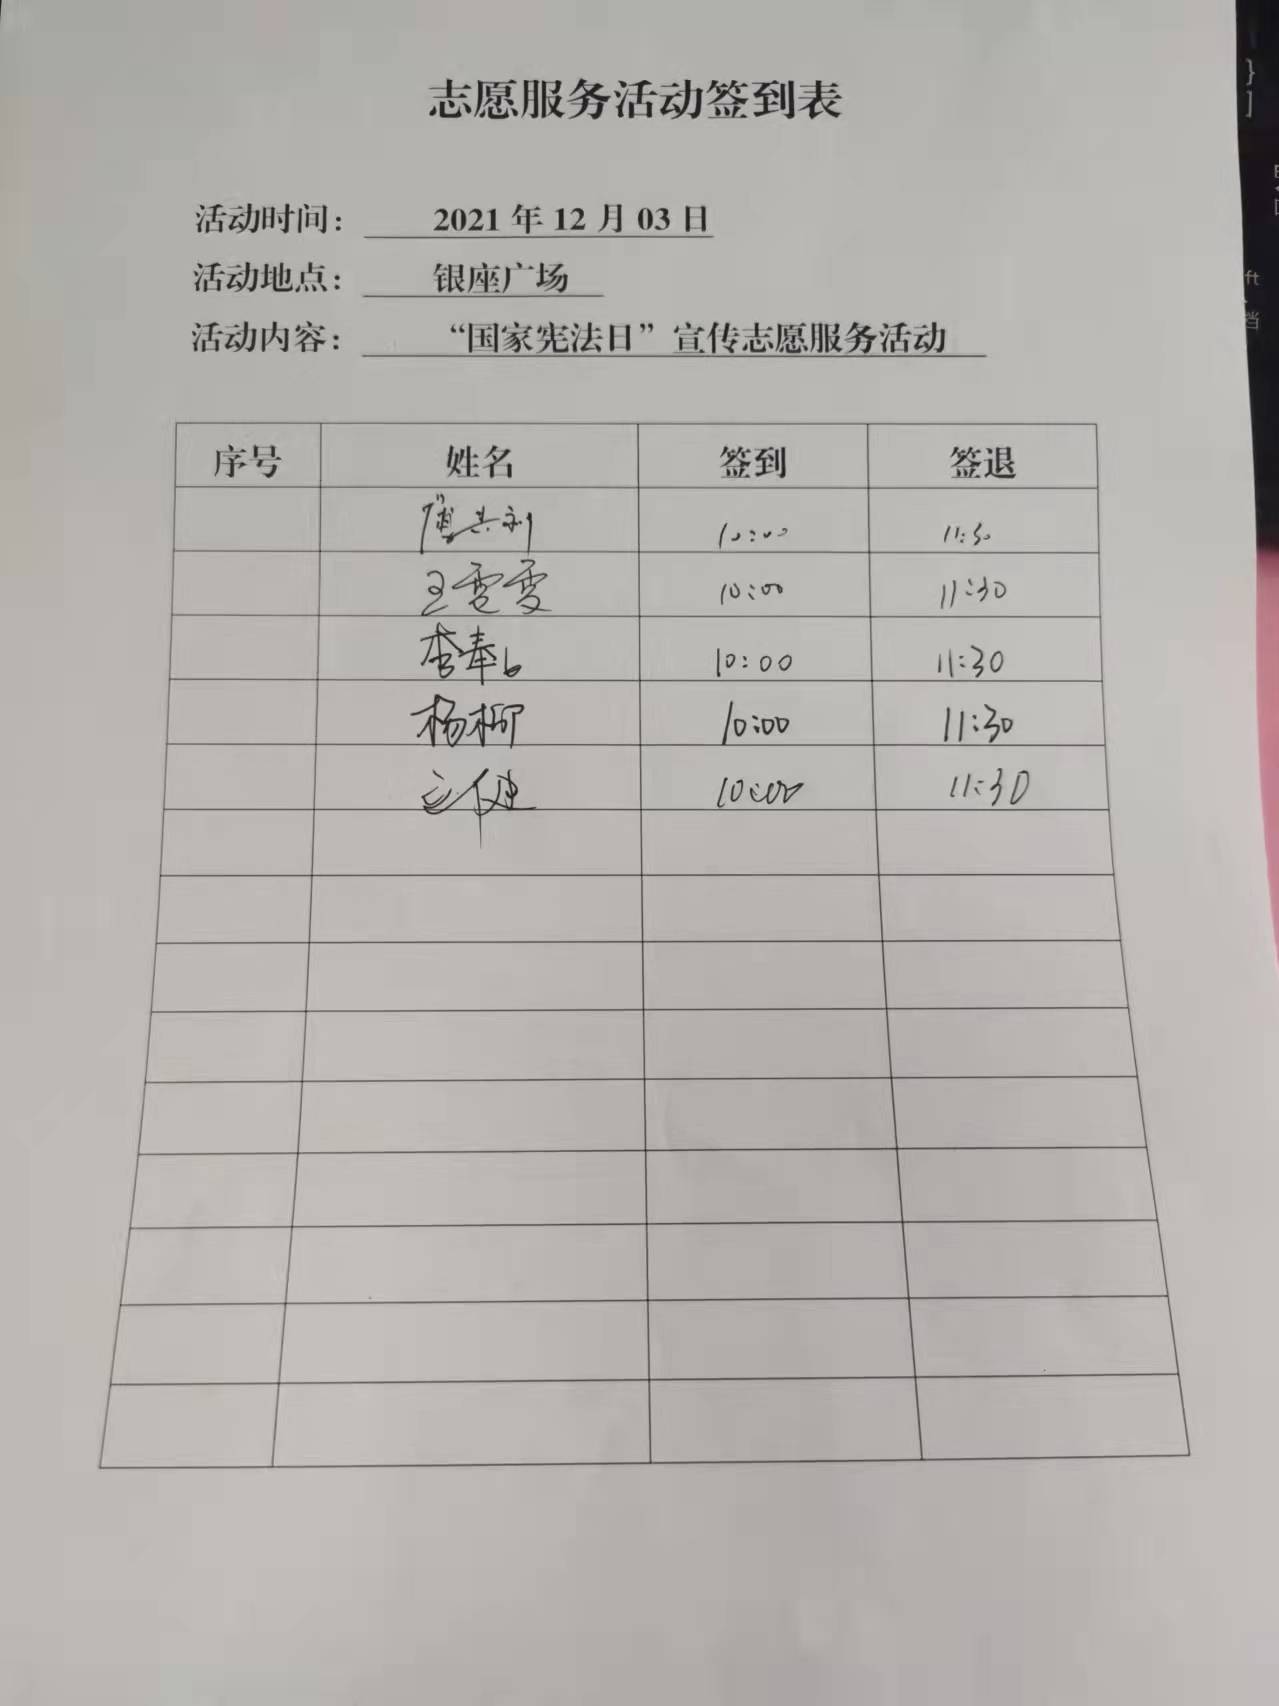 志愿服务活动签到表
活动时间： 2021 年 12 月 03 日
活动地点： 银座广场
活动内容： “国家宪法日”宣传志愿服务活动
序号 姓名 签到 签退
10:00 11:30
王雯雯 10:00 11:30
李奉 10:00 11:30
杨柳 10:00 11:30
健 10:00 11:30
}
]
ft
档